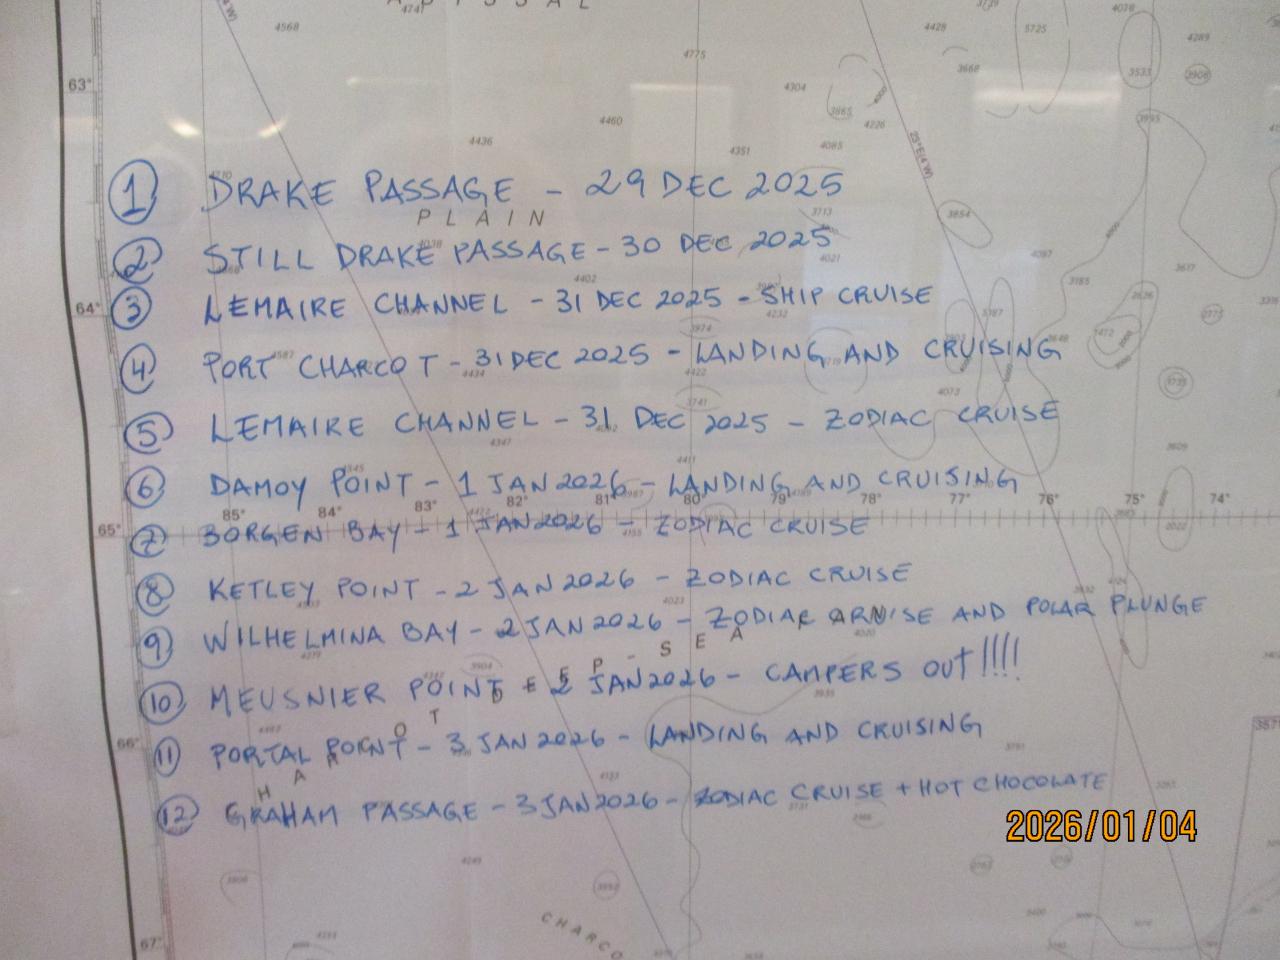 ① DRAKE PASSAGE - 29 DEC 2025
PLAIN
② STILL DRAKE PASSAGE - 30 DEC 2025
③ LEMAIRE CHANNEL - 31 DEC 2025 - SHIP CRUISE
④ PORT CHARCOT - 31 DEC 2025 - LANDING AND CRUISING
⑤ LEMAIRE CHANNEL - 31 DEC 2025 - ZODIAC CRUISE
⑥ DAMOY POINT - 1 JAN 2026 - LANDING AND CRUISING
85° 84° 83° 82° 81° 80° 79° 78° 77° 76° 75° 74°
⑦ BORGEN BAY - 1 JAN 2026 - ZODIAC CRUISE
⑧ KETLEY POINT - 2 JAN 2026 - ZODIAC CRUISE
⑨ WILHELMINA BAY - 2 JAN 2026 - ZODIAC CRUISE AND POLAR PLUNGE
⑩ MEUSNIER POINT - 2 JAN 2026 - CAMPERS OUT!!!!
⑪ PORTAL POINT - 3 JAN 2026 - LANDING AND CRUISING
⑫ GRAHAM PASSAGE - 3 JAN 2026 - ZODIAC CRUISE + HOT CHOCOLATE
2026/01/04
63°
64°
65°
66°
67°
DEEP-SEA
CHARCO